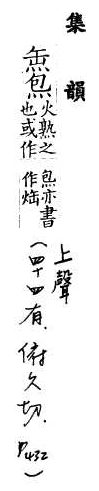 集韻
缹炰火熟之也或作炰亦書作
上聲
（四十四有．俯久切．P432）